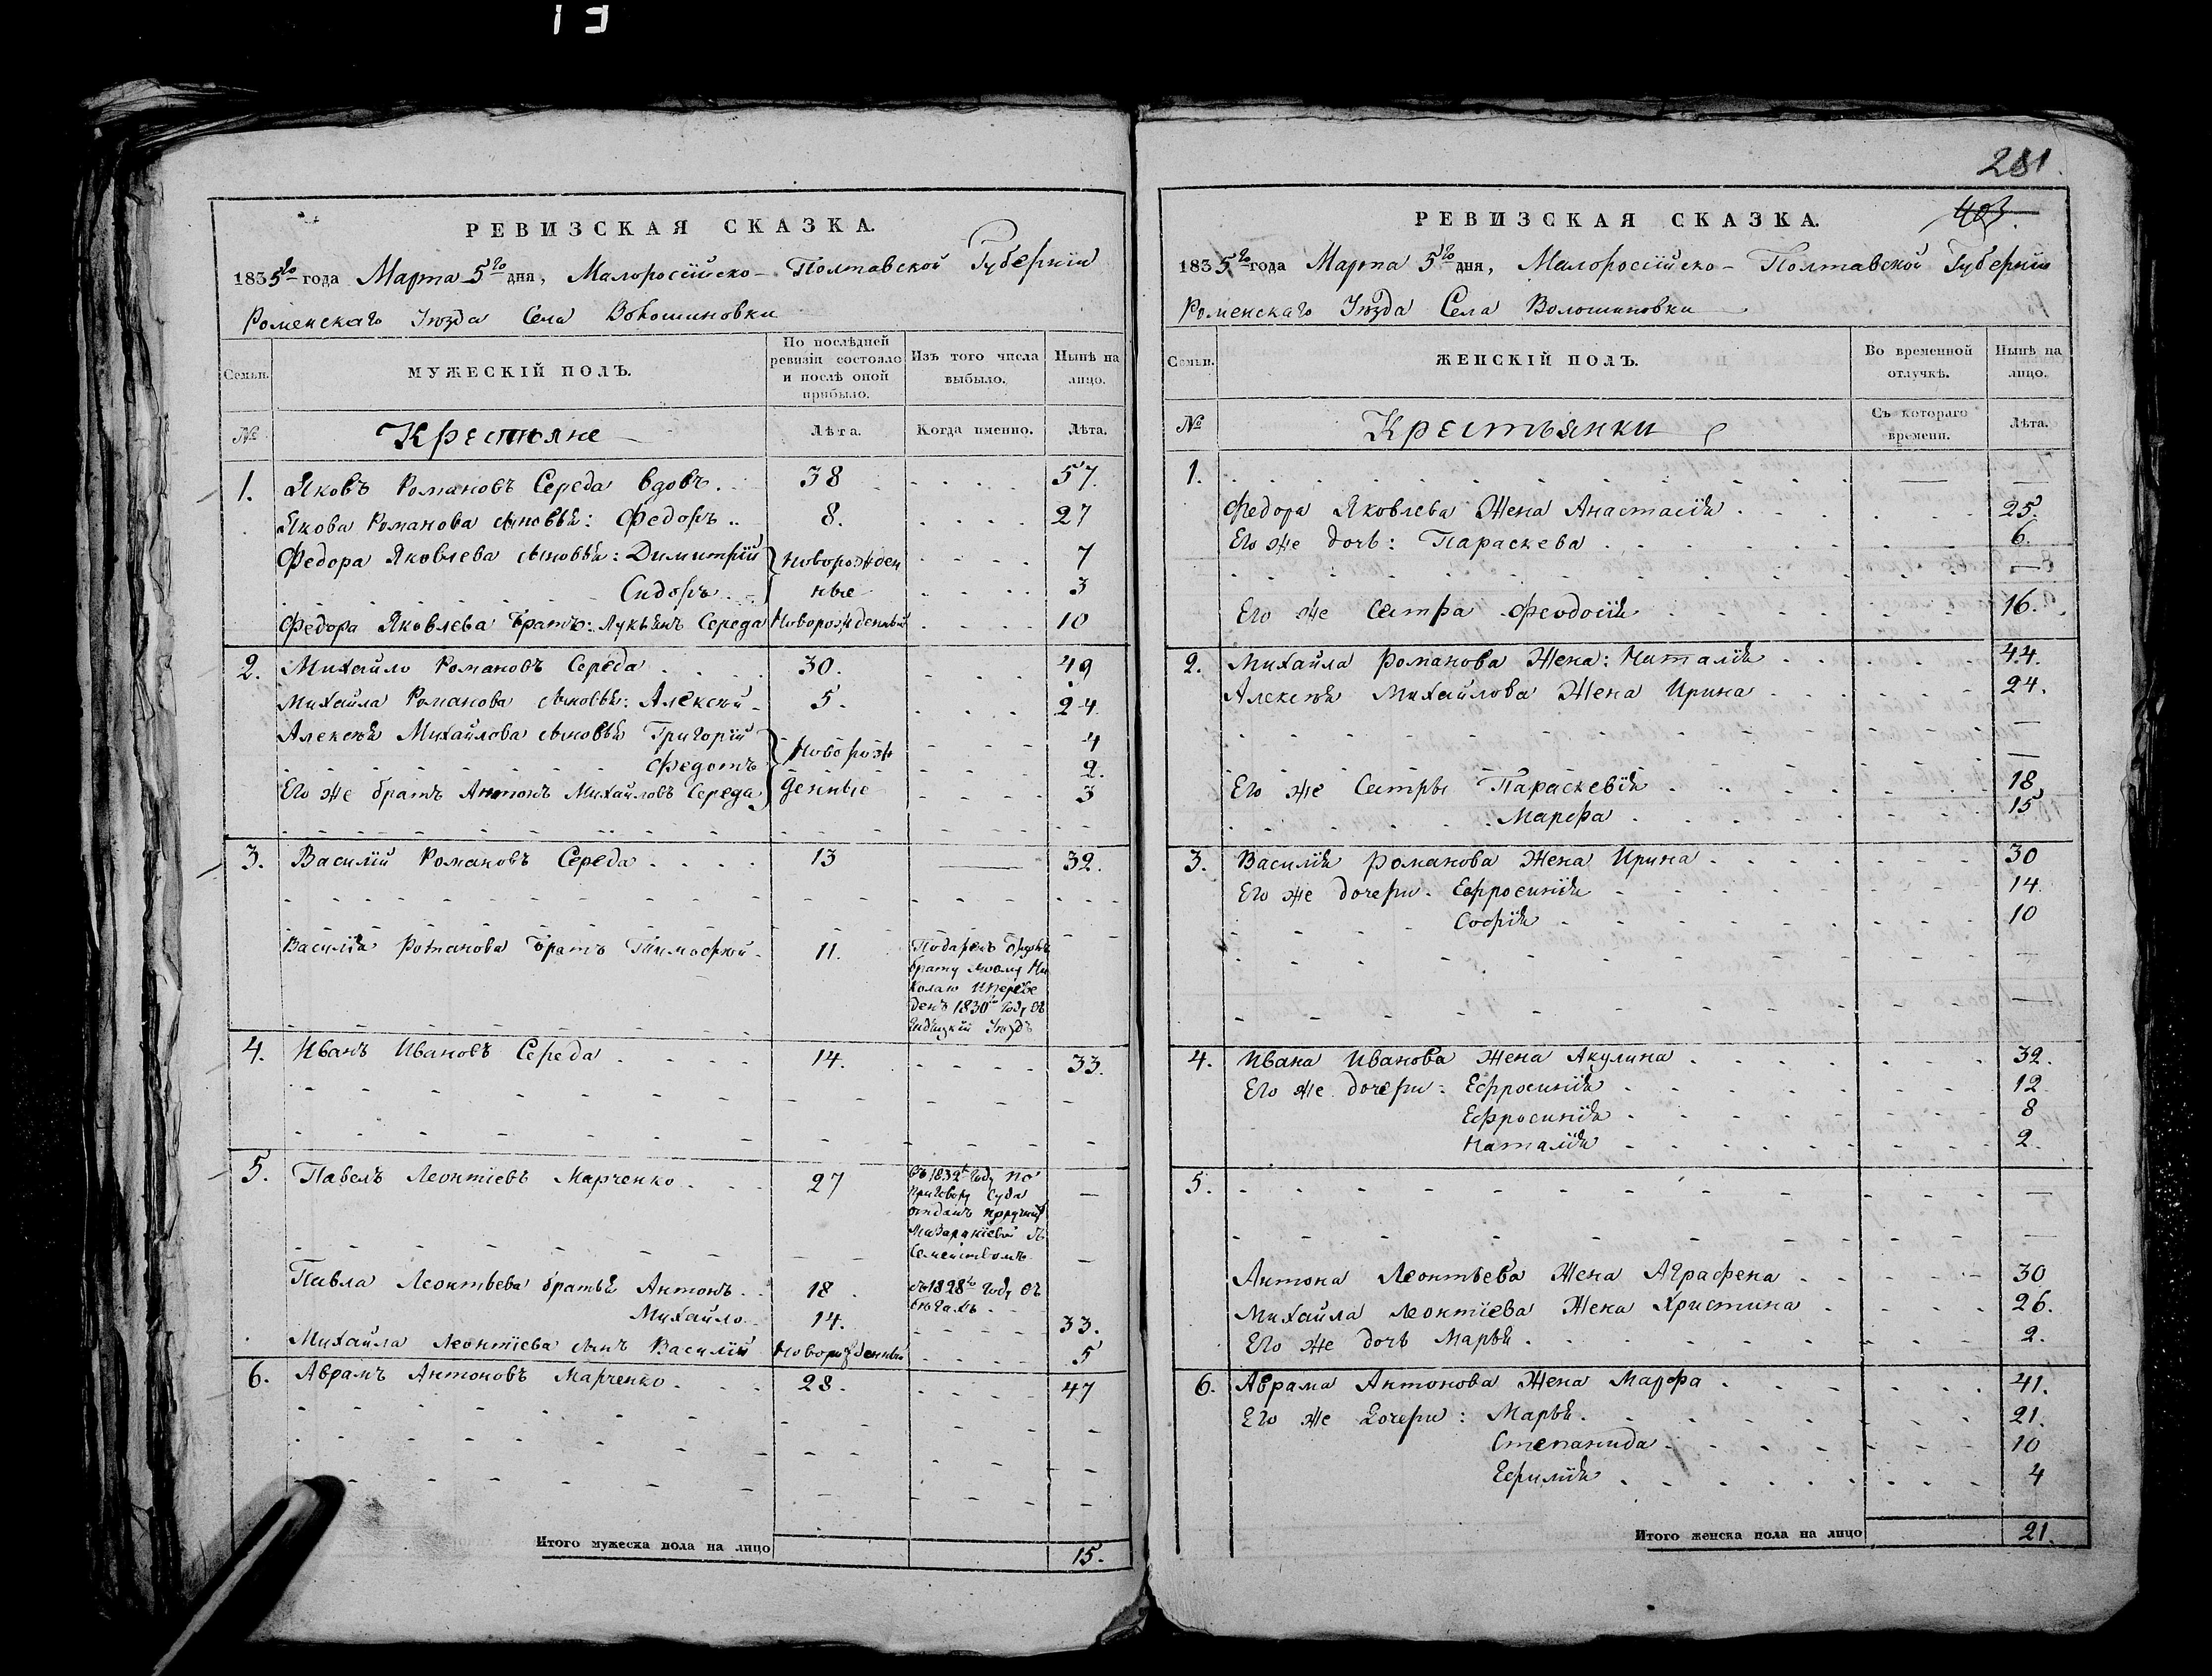 13
РЕВИЗСКАЯ СКАЗКА.
1835го года Марта 5го дня, Малоросiйско-Полтавской Губернiи
Роменскаго Уѣзда Села Волошиновки
Семьи. МУЖЕСКIЙ ПОЛЪ. По послѣдней ревизiи состояло и послѣ оной прибыло. Изъ того числа выбыло. Нынѣ на лицо.
№ Крестьяне Лѣта. Когда именно. Лѣта.
1. Яковъ Романовъ Середа вдовъ. 38 57.
Якова Романова сыновья: Федоръ 8. 27
Федора Яковлева сыновья: Димитрiй новорожден 7
Сидоръ ные 3
Федора Яковлева братъ: Лукьянъ Середа Новорожденный 10
2. Михайло Романовъ Середа 30. 49
Михайла Романова сыновья: Алексѣй 5. 24
Алексѣя Михайлова сыновья Григорiй Новорож 4
Федотъ 2.
Его же братъ Антонъ Михайловъ Середа денные 3
3. Василiй Романовъ Середа 13 32.
Василiя Романова братъ Тимофѣй 11. Подаренъ
брату моему Ни
колаю и переве
денъ 1830го году въ
Уѣздъ
4. Иванъ Ивановъ Середа 14. 33.
5. Павелъ Леонтiевъ Марченко 27 въ 1832м году по —
приговору суда
отданъ
съ
семействомъ
Павла Леонтьева братья Антонъ 18 съ 1828го году въ
бѣгахъ
Михайло 14. 33.
Михайла Леонтiева сынъ Василiй Новорожденный 5
6. Аврамъ Антоновъ Марченко 28. 47
Итого мужеска пола на лицо 15.
281
403.
РЕВИЗСКАЯ СКАЗКА.
1835го года Марта 5го дня, Малоросiйско-Полтавской Губернiи
Роменскаго Уѣзда Села Волошиновки
Семьи. ЖЕНСКIЙ ПОЛЪ. Во временной отлучкѣ. Нынѣ на лицо.
№ Крестьянки Съ котораго времени. Лѣта.
1.
Федора Яковлева Жена Анастасiя 25.
Его же дочь: Параскева 6.
Его же Сестра Феодосiя 16.
2. Михайла Романова Жена: Наталiя 44.
Алексѣя Михайлова Жена Ирина 24.
Его же Сестры Параскевiя 18,
Марфа 15
3. Василiя Романова Жена Ирина 30
Его же дочери. Ефросинiя 14
Софiя 10
4. Ивана Иванова Жена Акулина 32.
Его же дочери: Ефросинiя 12
Ефросинiя 8
Наталiя 2.
5.
Антона Леонтьева Жена Аграфена 30
Михайла Леонтiева Жена Христина 26.
Его же дочь Марья 2.
6. Аврама Антонова Жена Марфа 41.
Его же дочери: Марья 21.
Степанида 10
Ефимiя 4
Итого женска пола на лицо 21.